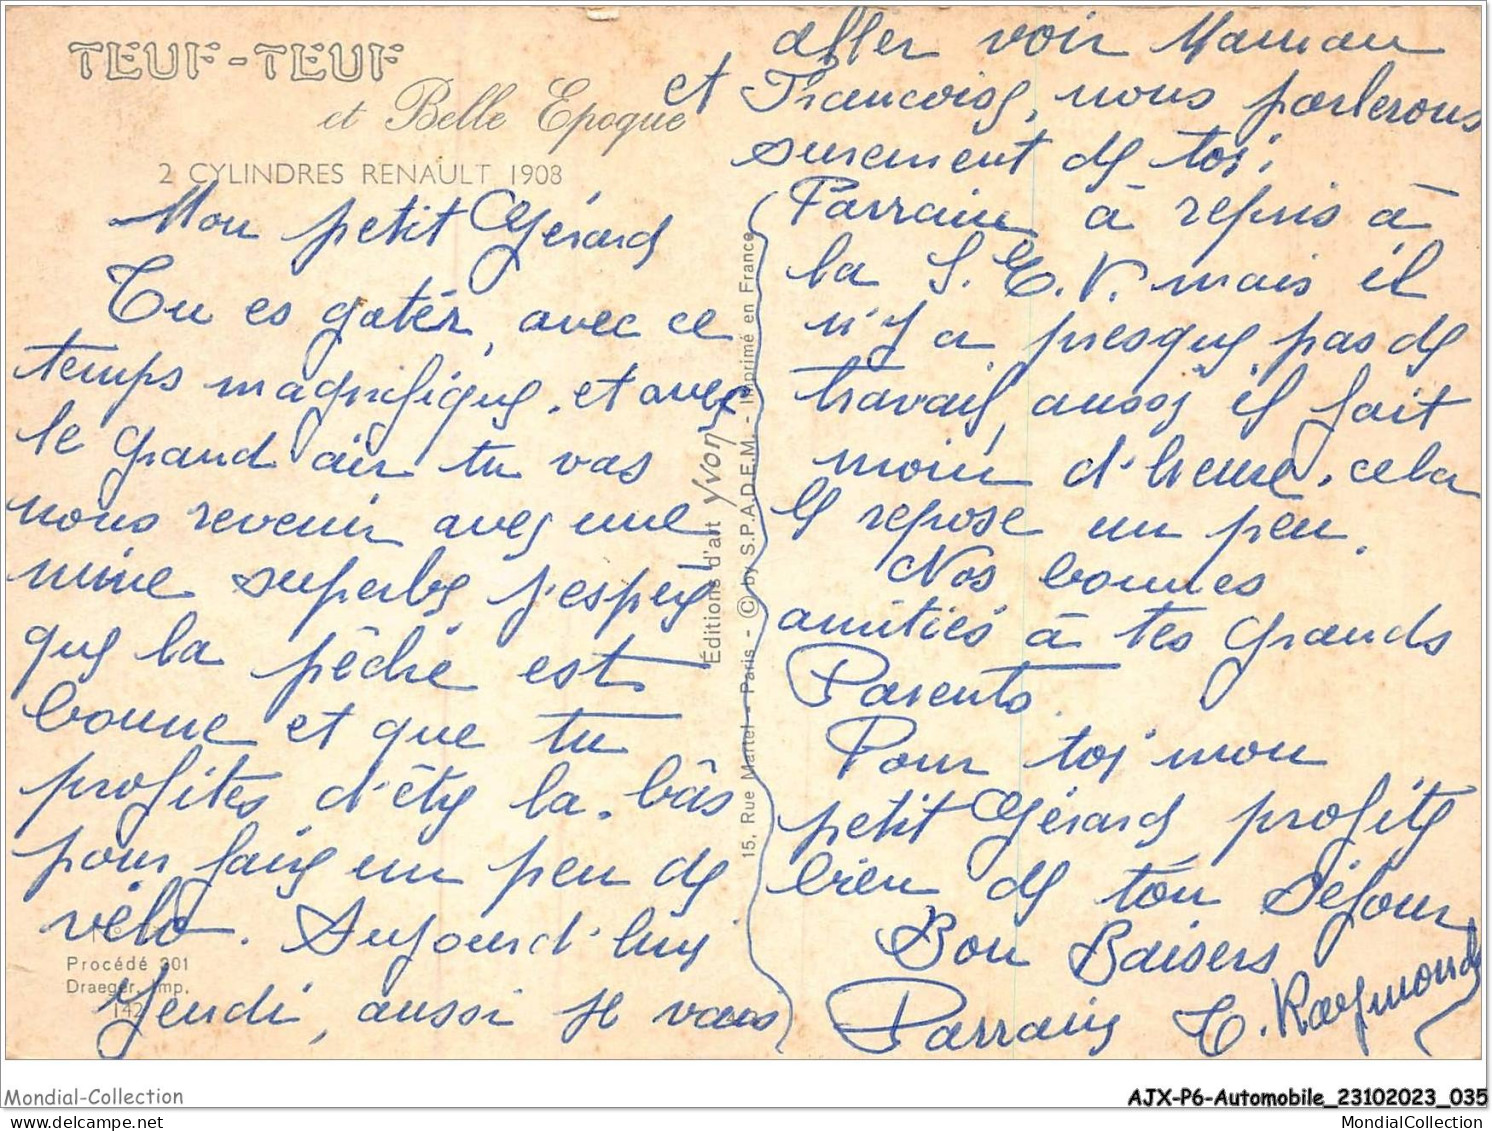 TEUF-TEUF
et Belle Epoque
2 CYLINDRES RENAULT 1908
Mon petit Gérard
Tu es gatér, avec ce
temps magnifique. et avec
le grand air tu vas
nous revenir avec une
mine superbe j'espère
que la pêche est
bonne et que tu
profites d'éty la-bâs
pour faire un peu de
vélo. Aujourd'hui
Jeudi, aussi je vais
Procédé 301
Draeger, Imp.
142
Éditions d'art Yvon
15, Rue Martel - Paris - © by S.P.A.D.E.M. - Imprimé en France
aller voir Maman
et Francoise, nous parlerons
surement de toi.
Parrain à repris à
la S.E.V. mais il
n'y a presque pas de
travail, aussi il fait
moin d'heure. cela
le repose un peu.
Nos bonnes
amitiés à tes grands
Parents.
Pour toi mon
petit Gérard profite
bien de ton Séjour
Bon Baisers
Parrain T. Raymonde
Mondial-Collection
AJX-P6-Automobile_23102023_035
MondialCollection